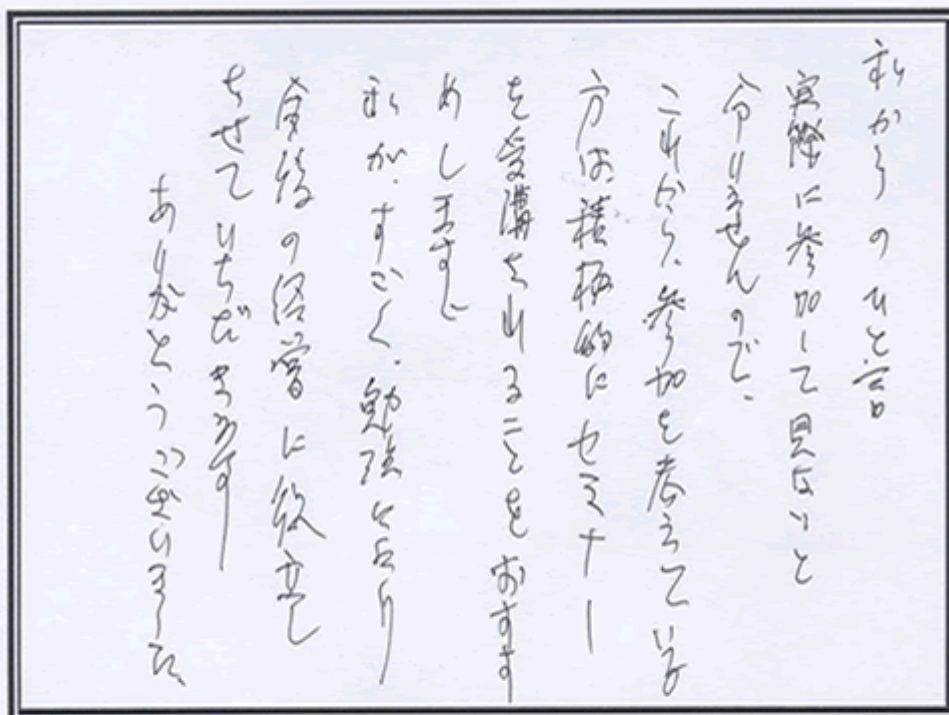 私からのひと言
実際に参加して見ないと
分りませんので、
これから、参加を考えている
方は、積極的にセミナー
を受講されることをおすす
めしますし
私が、すごく、勉強になり
今後の経営に役立た
させていただきます
ありがとうございました。